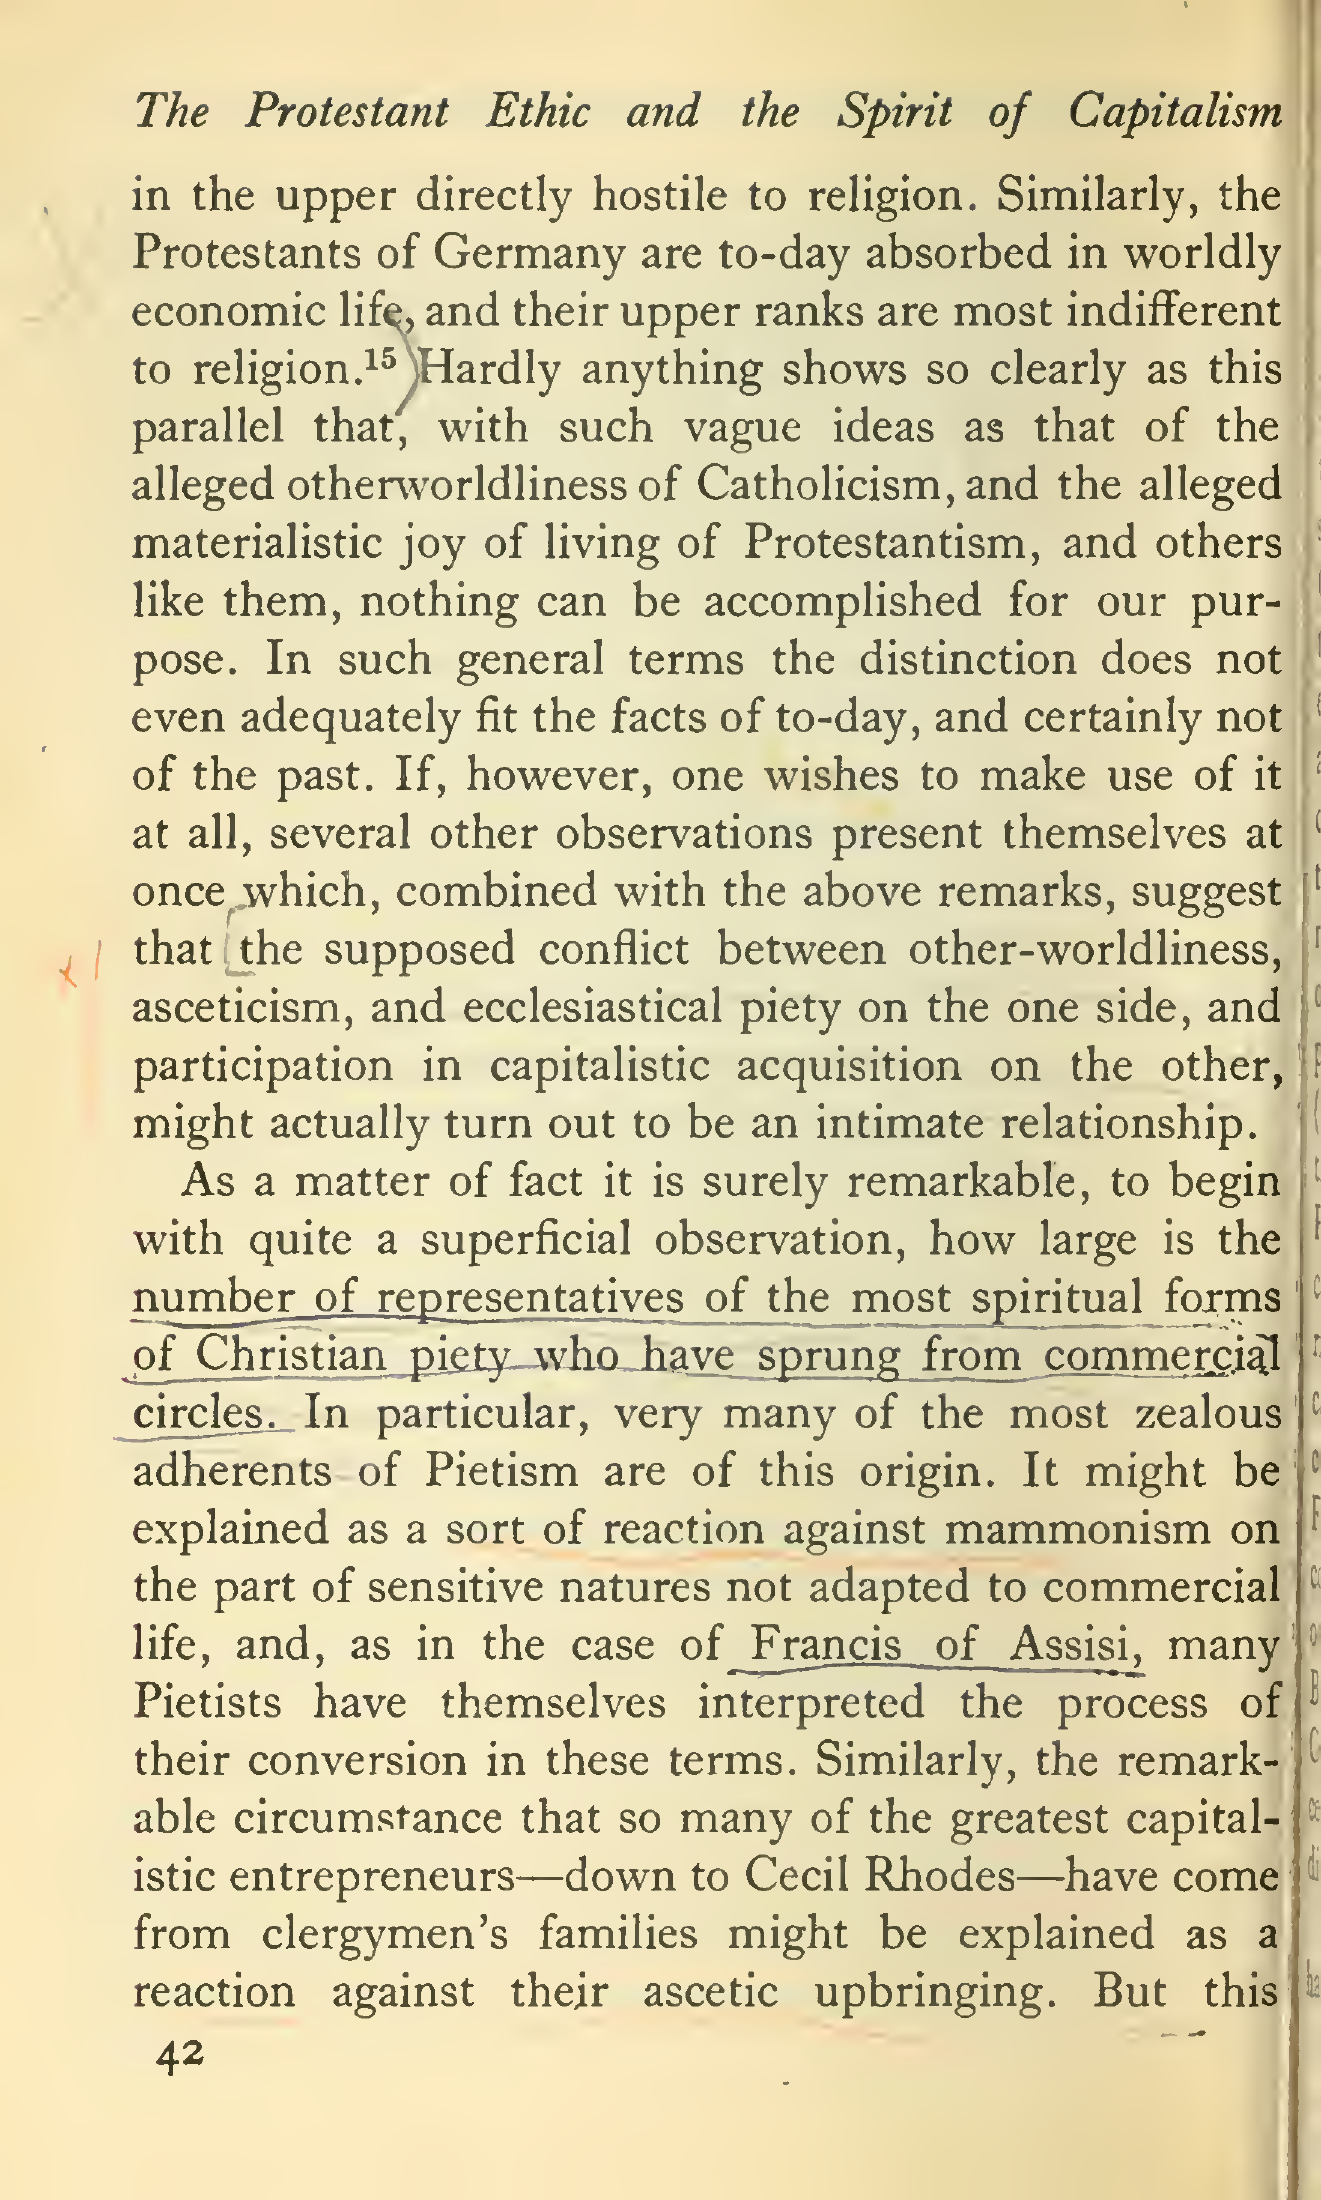 The Protestant Ethic and the Spirit of Capitalism
in the upper directly hostile to religion. Similarly, the
Protestants of Germany are to-day absorbed in worldly
economic life, and their upper ranks are most indifferent
to religion.¹⁵ Hardly anything shows so clearly as this
parallel that, with such vague ideas as that of the
alleged otherworldliness of Catholicism, and the alleged
materialistic joy of living of Protestantism, and others
like them, nothing can be accomplished for our pur-
pose. In such general terms the distinction does not
even adequately fit the facts of to-day, and certainly not
of the past. If, however, one wishes to make use of it
at all, several other observations present themselves at
once which, combined with the above remarks, suggest
that the supposed conflict between other-worldliness,
asceticism, and ecclesiastical piety on the one side, and
participation in capitalistic acquisition on the other,
might actually turn out to be an intimate relationship.
As a matter of fact it is surely remarkable, to begin
with quite a superficial observation, how large is the
number of representatives of the most spiritual forms
of Christian piety who have sprung from commercial
circles. In particular, very many of the most zealous
adherents of Pietism are of this origin. It might be
explained as a sort of reaction against mammonism on
the part of sensitive natures not adapted to commercial
life, and, as in the case of Francis of Assisi, many
Pietists have themselves interpreted the process of
their conversion in these terms. Similarly, the remark-
able circumstance that so many of the greatest capital-
istic entrepreneurs—down to Cecil Rhodes—have come
from clergymen's families might be explained as a
reaction against their ascetic upbringing. But this
42